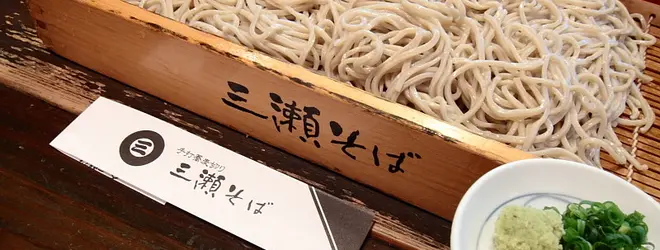 三瀬そば
三
手打蕎麦切り
三瀬そば